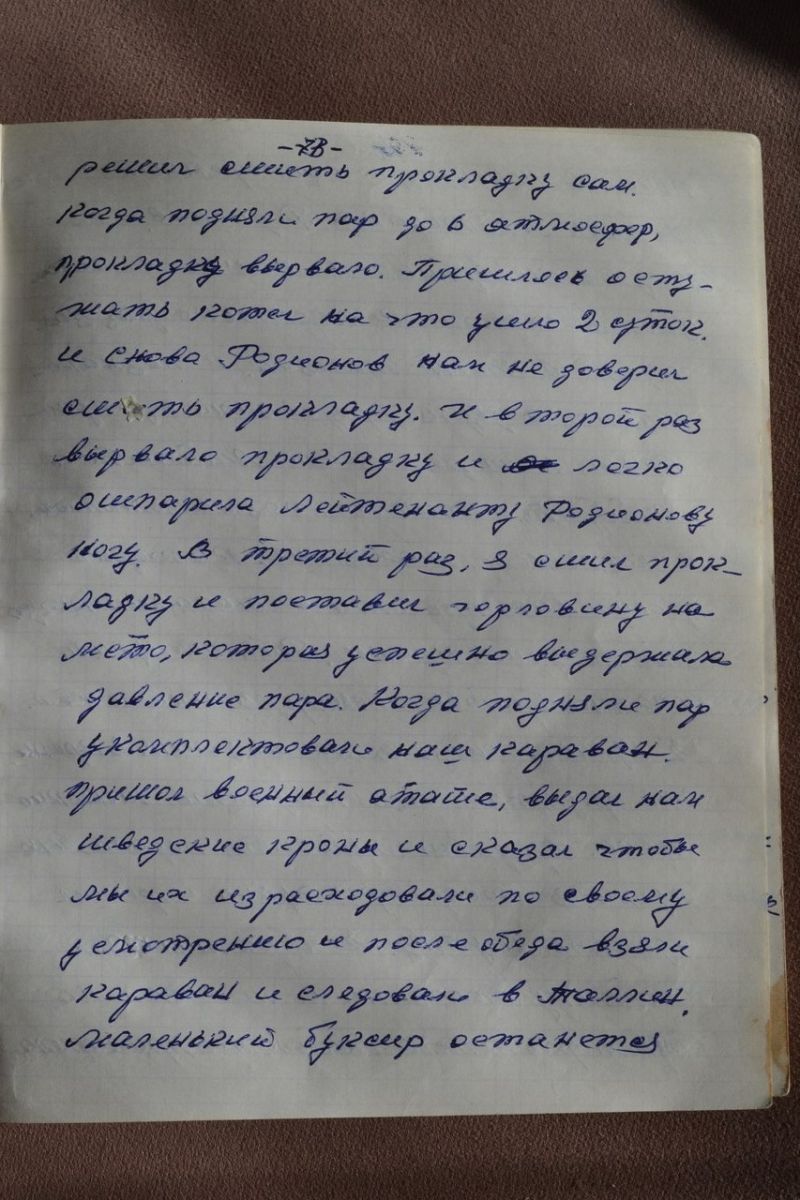 -73-
решил сшить прокладку сам.
когда подняли пар до 6 атмосфер,
прокладку вырвало. Пришлось осту-
жать котел на что ушло 2 суток.
и снова Родионов нам не доверил
сшить прокладку. И второй раз
вырвало прокладку и легко
ошпарила лейтенанту Родионову
ногу. В третий раз, я сшил прок-
ладку и поставил горловину на
место, которая успешно выдержала
давление пара. Когда подняли пар
укомплектовали наш караван.
пришол военный аташе, выдал нам
шведские кроны и сказал чтобы
мы их израсходовали по своему
усмотрению и после обеда взяли
караван и следовали в Таллин.
маленький буксир останется